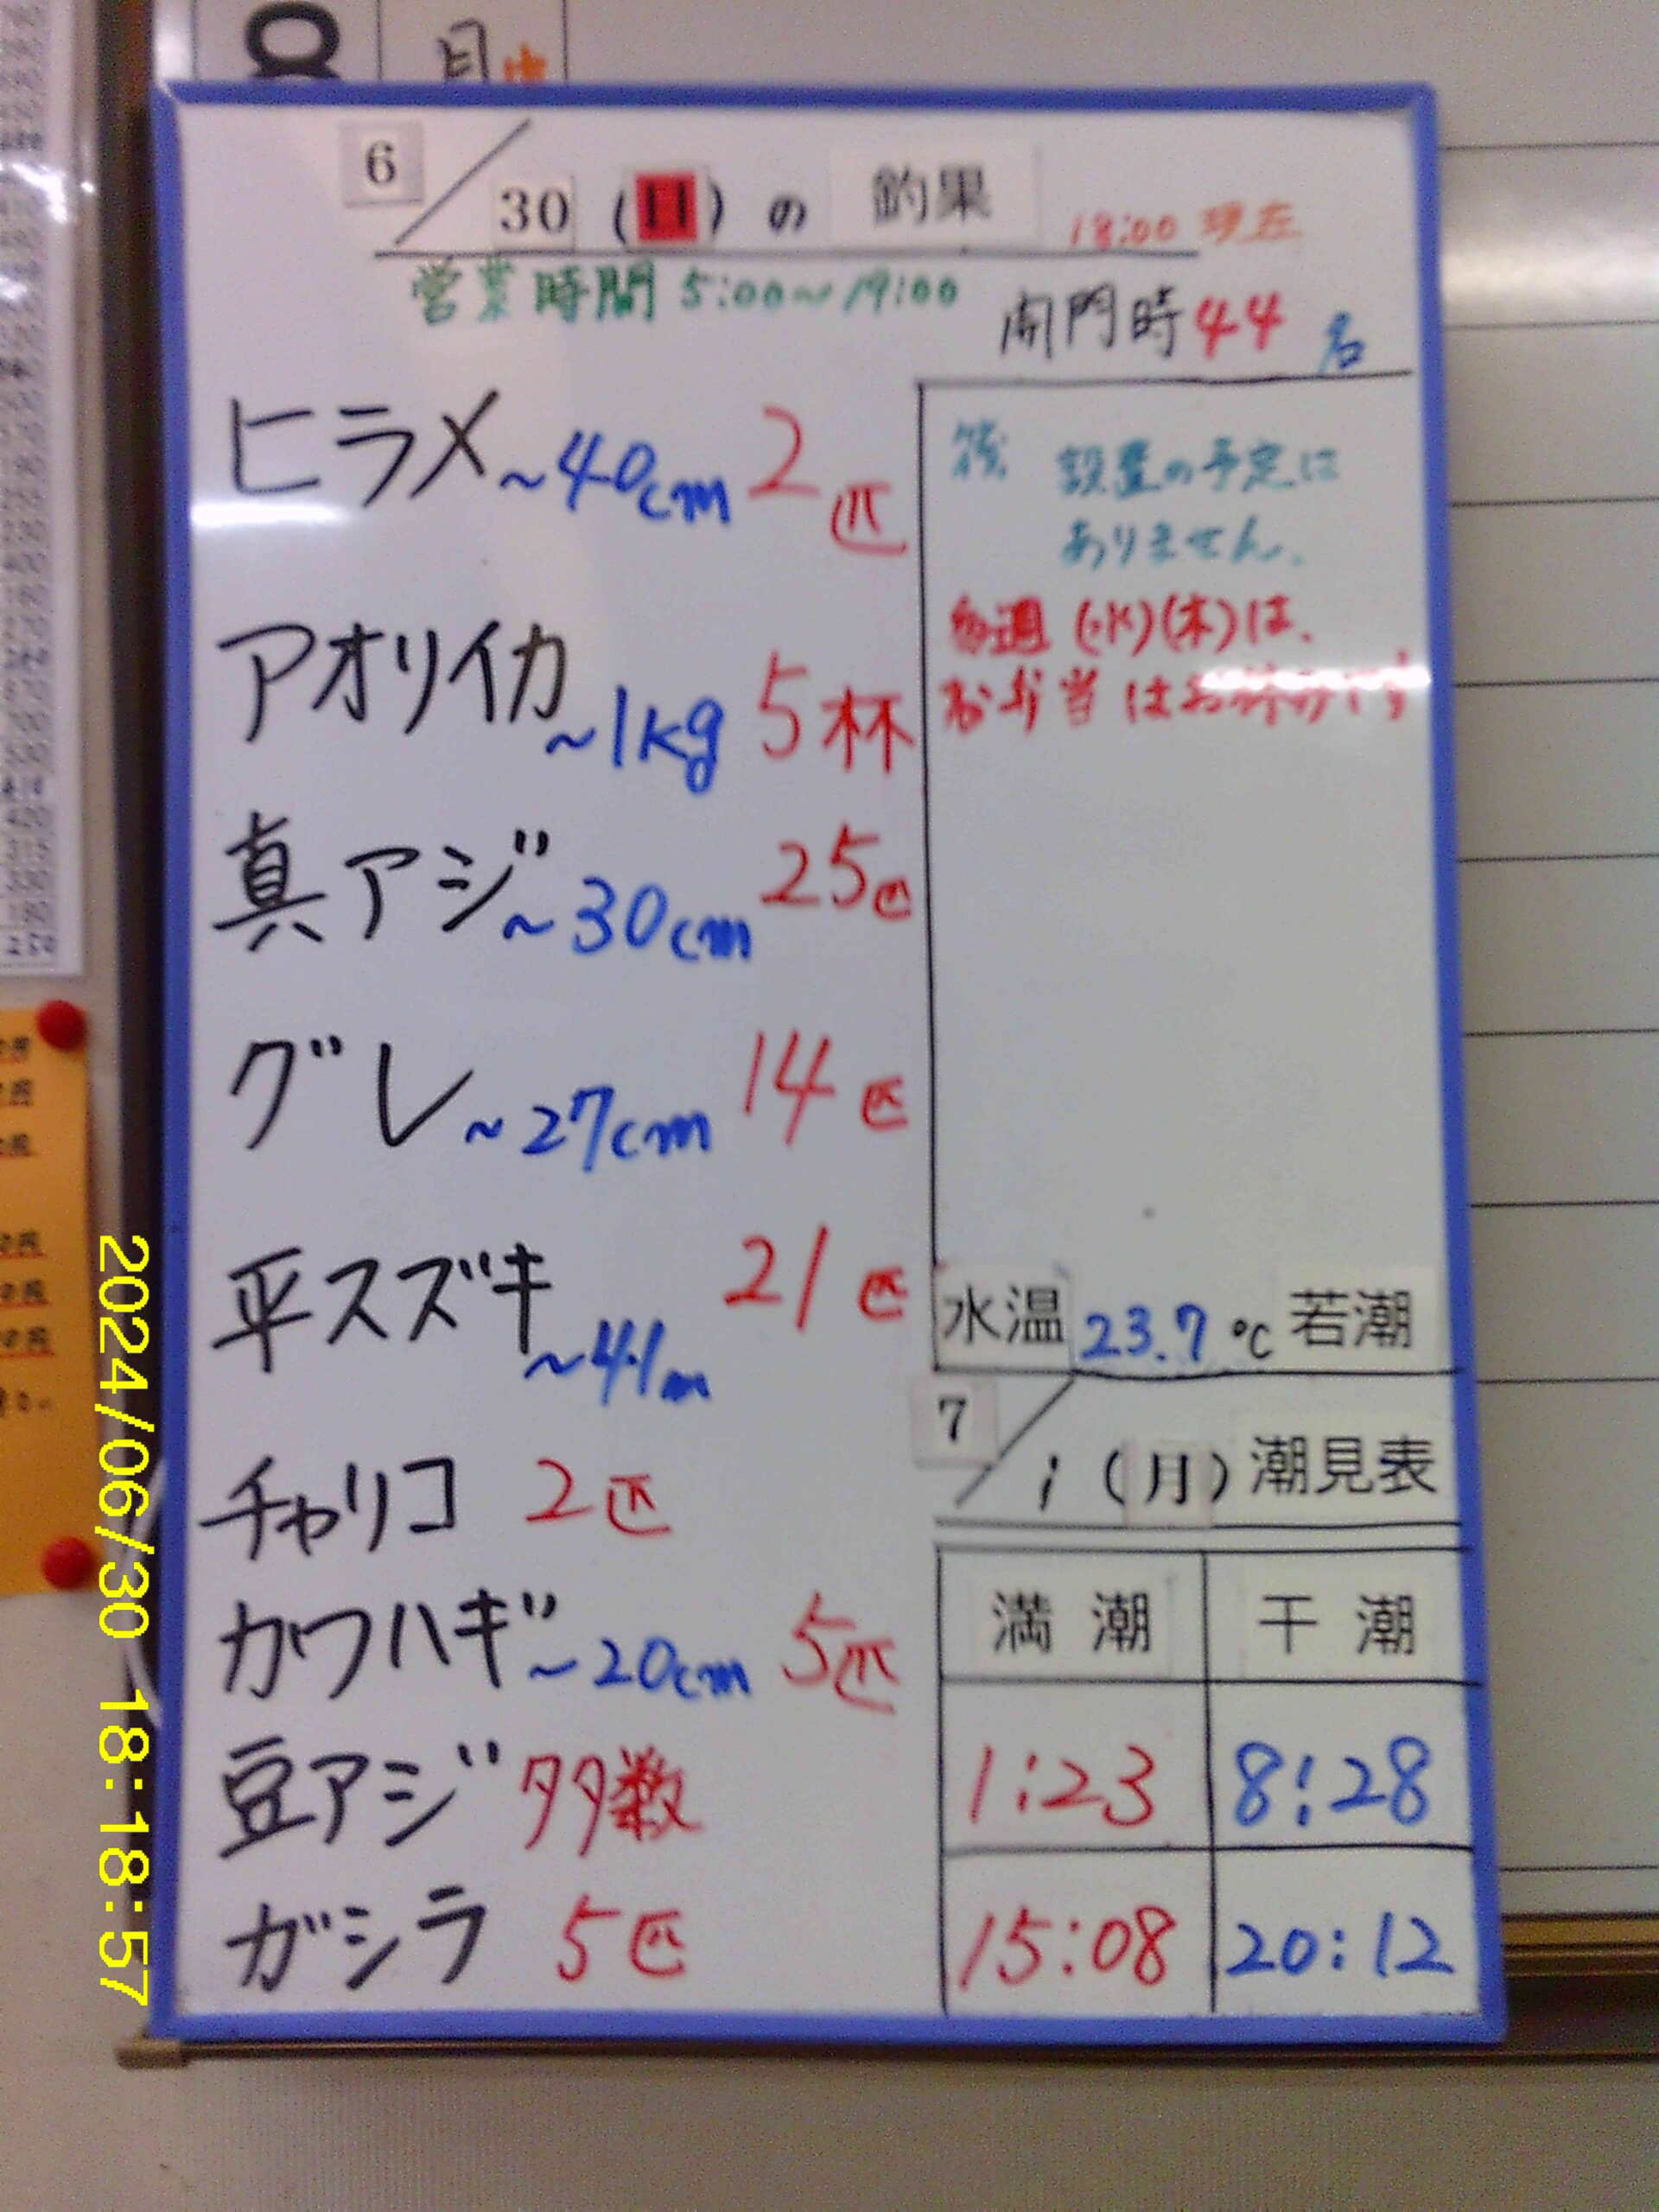 6/30(日)の 釣果 18:00 現在
営業時間 5:00～19:00
開門時 44 名
ヒラメ ～40cm 2匹
アオリイカ ～1kg 5杯
真アジ ～30cm 25匹
グレ ～27cm 14匹
平スズキ ～41m 21匹
チャリコ 2匹
カワハギ ～20cm 5匹
豆アジ 多数
ガシラ 5匹
設置の予定は
ありません.
毎週(水)(木)は、
お弁当はお休みです
水温 23.7℃ 若潮
7/1(月) 潮見表
満潮 干潮
1:23 8:28
15:08 20:12
2024/06/30 18:18:57